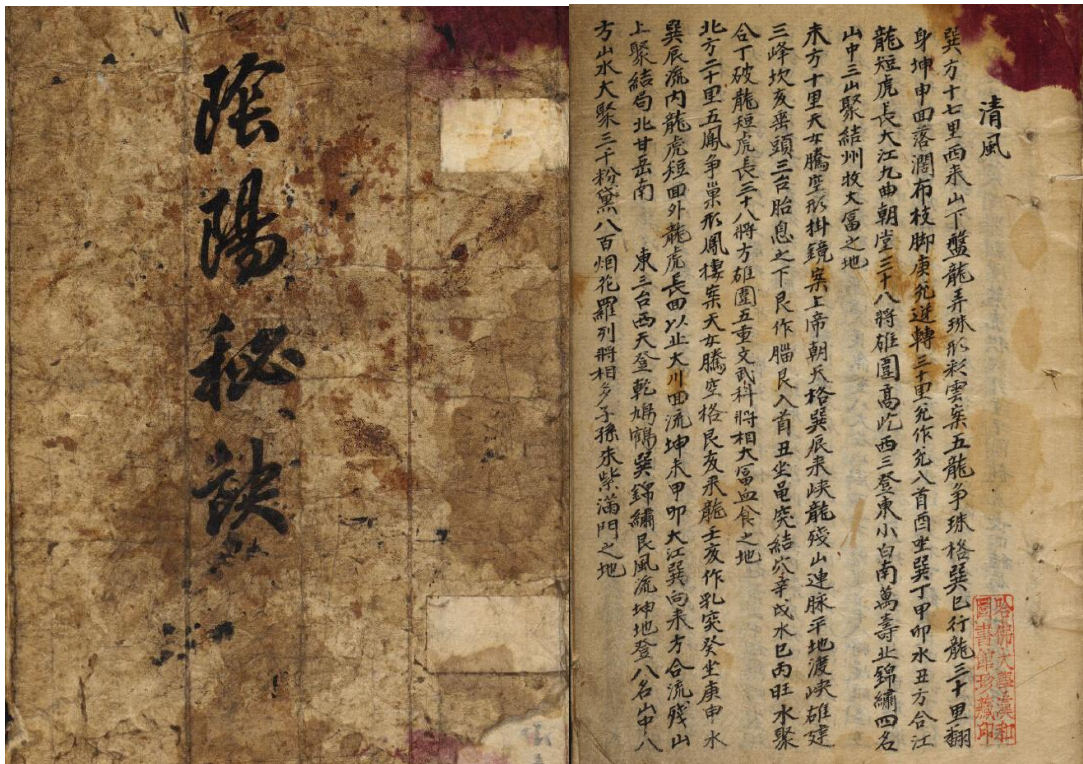 陰陽秘訣
清風
巽方十七里西來山下盤龍弄珠形彩雲案五龍争珠格巽巳行龍三十里翻
身坤申回落濶布枝脚庚兌逆轉三十里兌作兌入首酉坐巽丁甲卯水丑方合江
龍短虎長大江九曲朝堂三十八將雄圍高屹西三登東小白南萬壽北錦繡四名
山中三山聚結州牧大富之地
未方十里天女騰空形掛鏡案上帝朝天格巽辰來峽龍殘山連脉平地渡峽雄建
三峰坎亥巒頭三台胎息之下艮作腦艮入首丑坐黽突結穴辛戌水巳丙旺水聚
合丁破龍短虎長三十八將方雄圍五重文武科將相大富血食之地
北方二十里五鳳争巢形鳳樓案天女騰空格艮亥來龍壬亥作乳突癸坐庚申水
巽辰流內龍虎短回外龍虎長回以止大川回流坤未甲卯大江巽向未方合流殘山
上聚結局北甘岳南 東三台西天登乾鳩鶴巽錦繡艮風流坤地登八名山中八
方山水大聚三千粉黛八百烟花羅列將相多子孫朱紫滿門之地
哈佛大學漢和
圖書館珍藏印